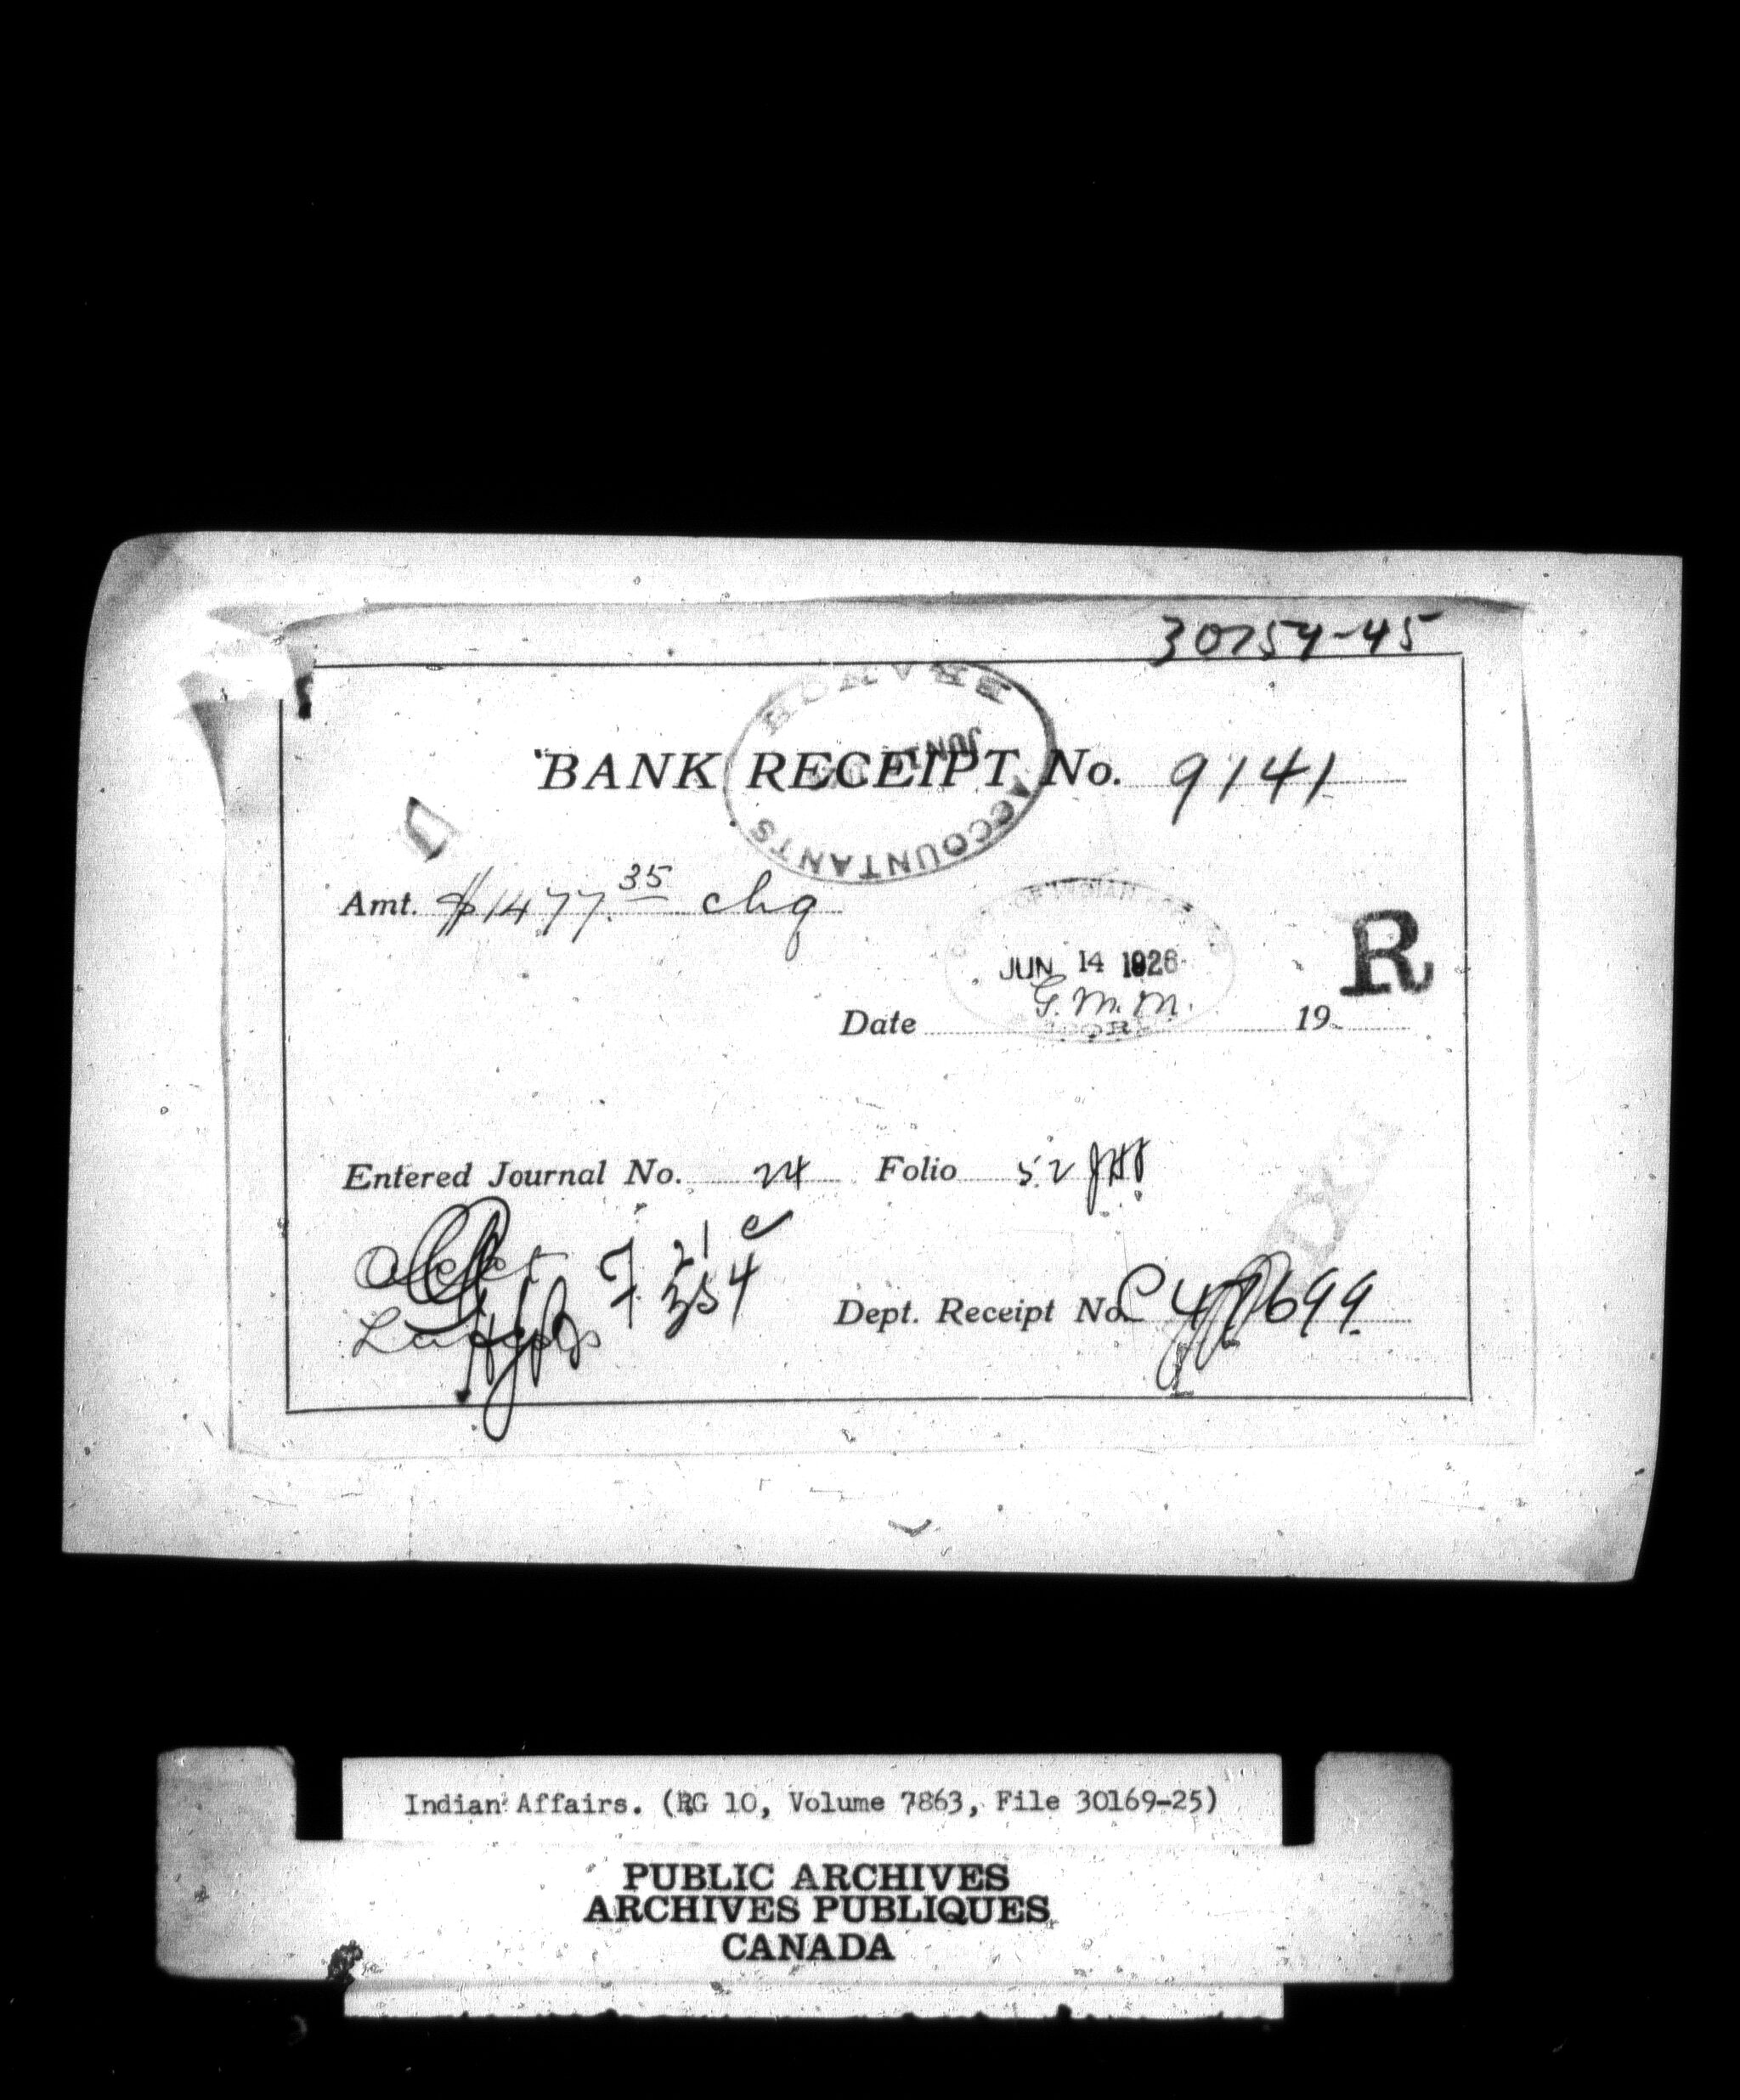 30754-45
BRANCH
JUN
ACCOUNTANTS
BANK RECEIPT No. 9141
Amt. $1477.35 chq
OF INDIAN
JUN 14 1926
R
G. M. M.
Date 19
Entered Journal No. 24 Folio 52
Dept. Receipt No. C 47699
Indian Affairs. (RG 10, Volume 7863, File 30169-25)
PUBLIC ARCHIVES
ARCHIVES PUBLIQUES
CANADA